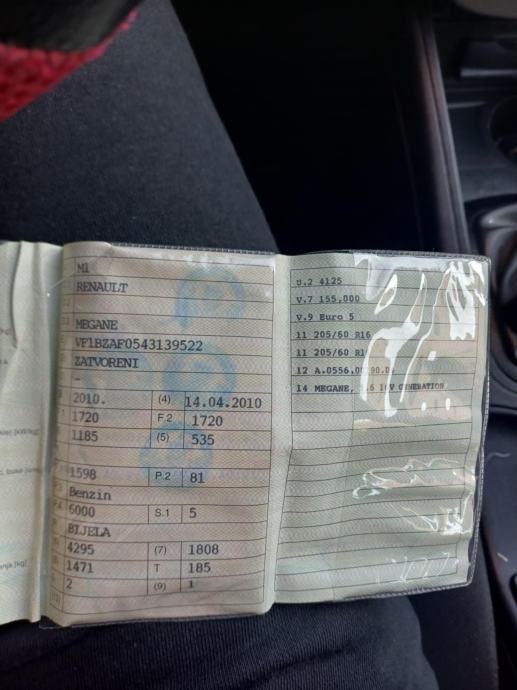 M1
RENAULT
MEGANE
VF1BZAF0543139522
ZATVORENI
–
2010. (4) 14.04.2010
1720 F.2 1720
1185 (5) 535
1598 P.2 81
Benzin
6000 S.1 5
BIJELA
4295 (7) 1808
1471 T 185
2 (9) 1
U.2 4125
V.7 155,000
V.9 Euro 5
11 205/60 R16
11 205/60 R1
12 A.0556.0
14 MEGANE, 1.6 16V GENERATION